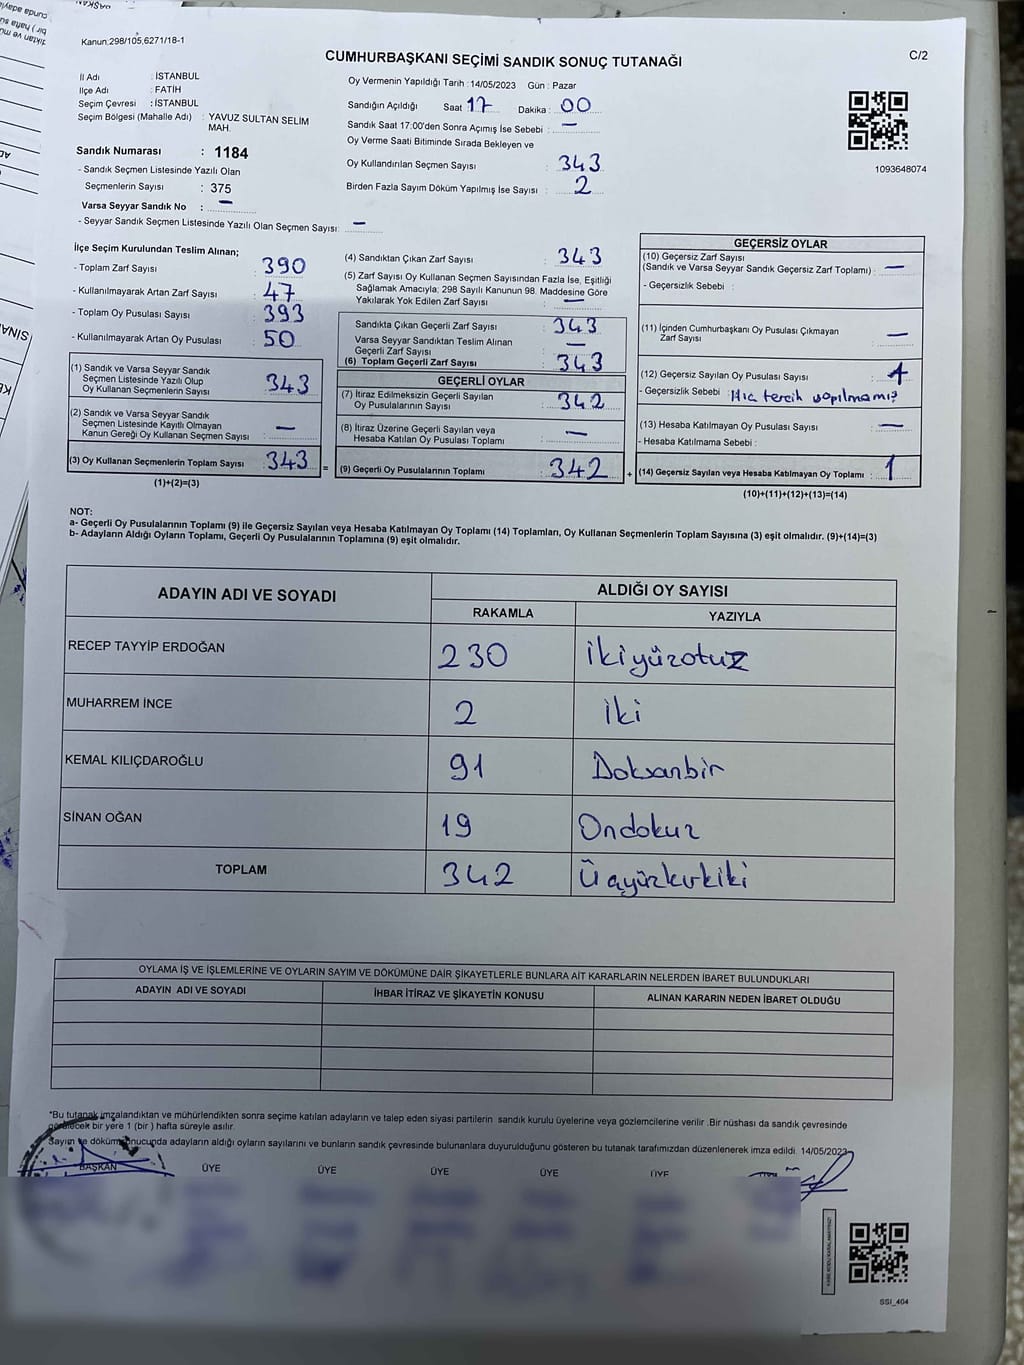 Kanun;298/105,6271/18-1
CUMHURBAŞKANI SEÇİMİ SANDIK SONUÇ TUTANAĞI
C/2
İl Adı : İSTANBUL
İlçe Adı : FATİH
Seçim Çevresi : İSTANBUL
Seçim Bölgesi (Mahalle Adı) : YAVUZ SULTAN SELİM
MAH.
Sandık Numarası : 1184
- Sandık Seçmen Listesinde Yazılı Olan
Seçmenlerin Sayısı : 375
Varsa Seyyar Sandık No : —
- Seyyar Sandık Seçmen Listesinde Yazılı Olan Seçmen Sayısı: —
Oy Vermenin Yapıldığı Tarih : 14/05/2023 Gün : Pazar
Sandığın Açıldığı Saat 17 Dakika : 00
Sandık Saat 17:00'den Sonra Açımış İse Sebebi : —
Oy Verme Saati Bitiminde Sırada Bekleyen ve
Oy Kullandırılan Seçmen Sayısı : 343
Birden Fazla Sayım Döküm Yapılmış İse Sayısı : 2
1093648074
İlçe Seçim Kurulundan Teslim Alınan;
- Toplam Zarf Sayısı : 390
- Kullanılmayarak Artan Zarf Sayısı : 47
- Toplam Oy Pusulası Sayısı : 393
- Kullanılmayarak Artan Oy Pusulası : 50
(1) Sandık ve Varsa Seyyar Sandık
Seçmen Listesinde Yazılı Olup
Oy Kullanan Seçmenlerin Sayısı : 343
(2) Sandık ve Varsa Seyyar Sandık
Seçmen Listesinde Kayıtlı Olmayan
Kanun Gereği Oy Kullanan Seçmen Sayısı : —
(3) Oy Kullanan Seçmenlerin Toplam Sayısı : 343
(1)+(2)=(3)
(4) Sandıktan Çıkan Zarf Sayısı : 343
(5) Zarf Sayısı Oy Kullanan Seçmen Sayısından Fazla İse, Eşitliği
Sağlamak Amacıyla; 298 Sayılı Kanunun 98. Maddesine Göre
Yakılarak Yok Edilen Zarf Sayısı : —
Sandıkta Çıkan Geçerli Zarf Sayısı : 343
Varsa Seyyar Sandıktan Teslim Alınan
Geçerli Zarf Sayısı : —
(6) Toplam Geçerli Zarf Sayısı : 343
GEÇERLİ OYLAR
(7) İtiraz Edilmeksizin Geçerli Sayılan
Oy Pusulalarının Sayısı : 342
(8) İtiraz Üzerine Geçerli Sayılan veya
Hesaba Katılan Oy Pusulası Toplamı : —
= (9) Geçerli Oy Pusulalarının Toplamı : 342
GEÇERSİZ OYLAR
(10) Geçersiz Zarf Sayısı
(Sandık ve Varsa Seyyar Sandık Geçersiz Zarf Toplamı) : —
- Geçersizlik Sebebi :
(11) İçinden Cumhurbaşkanı Oy Pusulası Çıkmayan
Zarf Sayısı : —
(12) Geçersiz Sayılan Oy Pusulası Sayısı : 1
- Geçersizlik Sebebi : Hiç tercih yapılmamış
(13) Hesaba Katılmayan Oy Pusulası Sayısı : —
- Hesaba Katılmama Sebebi :
+ (14) Geçersiz Sayılan veya Hesaba Katılmayan Oy Toplamı : 1
(10)+(11)+(12)+(13)=(14)
NOT:
a- Geçerli Oy Pusulalarının Toplamı (9) ile Geçersiz Sayılan veya Hesaba Katılmayan Oy Toplamı (14) Toplamları, Oy Kullanan Seçmenlerin Toplam Sayısına (3) eşit olmalıdır. (9)+(14)=(3)
b- Adayların Aldığı Oyların Toplamı, Geçerli Oy Pusulalarının Toplamına (9) eşit olmalıdır.
ADAYIN ADI VE SOYADI
ALDIĞI OY SAYISI
RAKAMLA YAZIYLA
RECEP TAYYİP ERDOĞAN 230 İkiyüzotuz
MUHARREM İNCE 2 İki
KEMAL KILIÇDAROĞLU 91 Doksanbir
SİNAN OĞAN 19 Ondokuz
TOPLAM 342 Üçyüzkırkiki
OYLAMA İŞ VE İŞLEMLERİNE VE OYLARIN SAYIM VE DÖKÜMÜNE DAİR ŞİKAYETLERLE BUNLARA AİT KARARLARIN NELERDEN İBARET BULUNDUKLARI
ADAYIN ADI VE SOYADI İHBAR İTİRAZ VE ŞİKAYETİN KONUSU ALINAN KARARIN NEDEN İBARET OLDUĞU
*Bu tutanak imzalandıktan ve mühürlendikten sonra seçime katılan adayların ve talep eden siyasi partilerin sandık kurulu üyelerine veya gözlemcilerine verilir .Bir nüshası da sandık çevresinde
görülecek bir yere 1 (bir ) hafta süreyle asılır.
Sayım ve döküm sonucunda adayların aldığı oyların sayılarını ve bunların sandık çevresinde bulunanlara duyurulduğunu gösteren bu tutanak tarafımızdan düzenlenerek imza edildi. 14/05/2023
BAŞKAN ÜYE ÜYE ÜYE ÜYE ÜYE
SSI_404